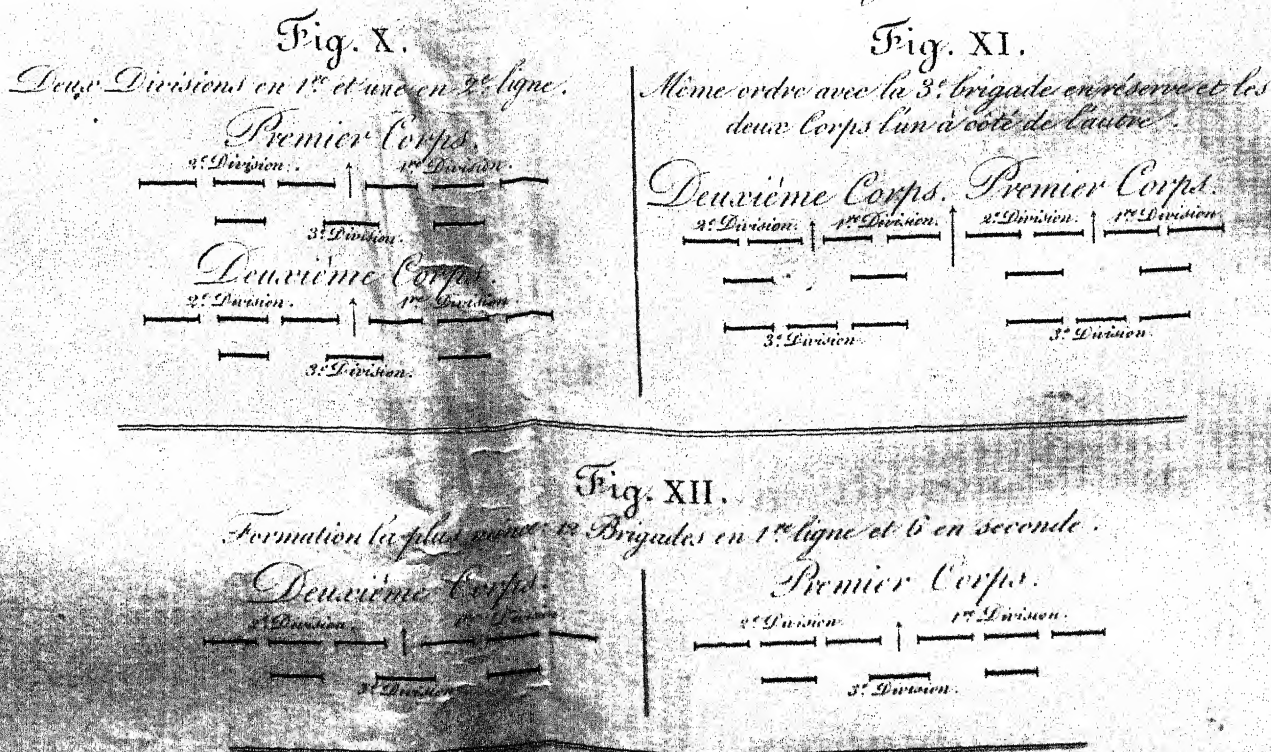 Fig. X.
Deux Divisions en 1re et une en 2e ligne.
Premier Corps.
2e Division. 1re Division.
3e Division.
Deuxième Corps.
2e Division. 1re Division
3e Division.
Fig. XI.
Même ordre avec la 3e brigade en réserve et les
deux Corps l'un à côté de l'autre.
Deuxième Corps. Premier Corps.
2e Division. 1re Division. 2e Division. 1re Division
3e Division 3e Division.
Fig. XII.
Formation la plus mince 12 Brigades en 1re ligne et 6 en seconde.
Deuxième Corps.
2e Division. 1re Division
3e Division
Premier Corps.
2e Division. 1re Division.
3e Division.